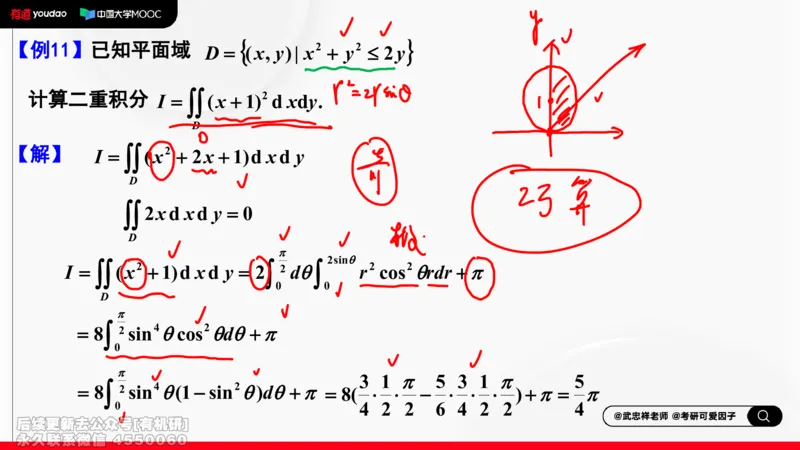 有道 youdao 中国大学MOOC
【例11】已知平面域 D = {(x, y) | x² + y² ≤ 2y}
计算二重积分 I = ∬_D (x + 1)² d xdy.
r² = 2r sinθ
y
1
0
【解】 I = ∬_D (x² + 2x + 1)d x d y
∬_D 2x d x d y = 0
巧算
I = ∬_D (x² + 1)d x d y = 2∫_0^{π/2} dθ ∫_0^{2sinθ} r² cos² θrdr + π
= 8∫_0^{π/2} sin⁴ θ cos² θdθ + π
= 8∫_0^{π/2} sin⁴ θ(1 − sin² θ)dθ + π = 8(3/4 · 1/2 · π/2 − 5/6 · 3/4 · 1/2 · π/2) + π = 5/4 π
@武忠祥老师 @考研可爱因子
后续更新去公众号[有机研]
永久联系微信 4550060